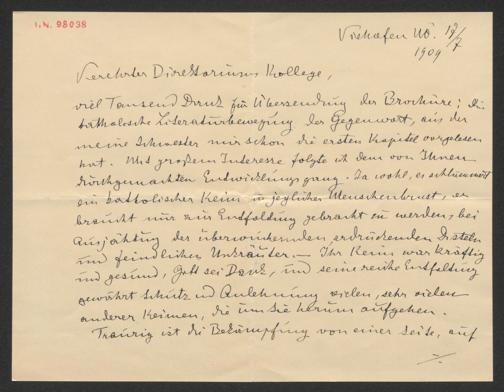 I.N. 98038
Viehofen NÖ. 19/7
1909
Verehrter Direktoriums Kollege,
viel Tausend Dank für Übersendung der Brochüre; Die
katholische Literaturbewegung der Gegenwart, aus der
meine Schwester mir schon die ersten Kapitel vorgelesen
hat. Mit großem Interesse folgte ich dem von Ihnen
durchgemachten Entwicklungsgang. Ja wohl, es schlummert
ein katholischer Keim in jeglicher Menschenbrust, er
braucht nur zur Entfaltung gebracht zu werden, bei
Ausjätung der überwuchernden, erdrückenden Disteln
und feindlichen Unkräuter. — Ihr Keim war kräftig
und gesund, Gott sei Dank, und seine reiche Entfaltung
gewährt Schutz und Anlehnung vielen, sehr vielen
anderer Keimen, die um Sie herum aufgehen.
Traurig ist die Bekämpfung von einer Seite, auf